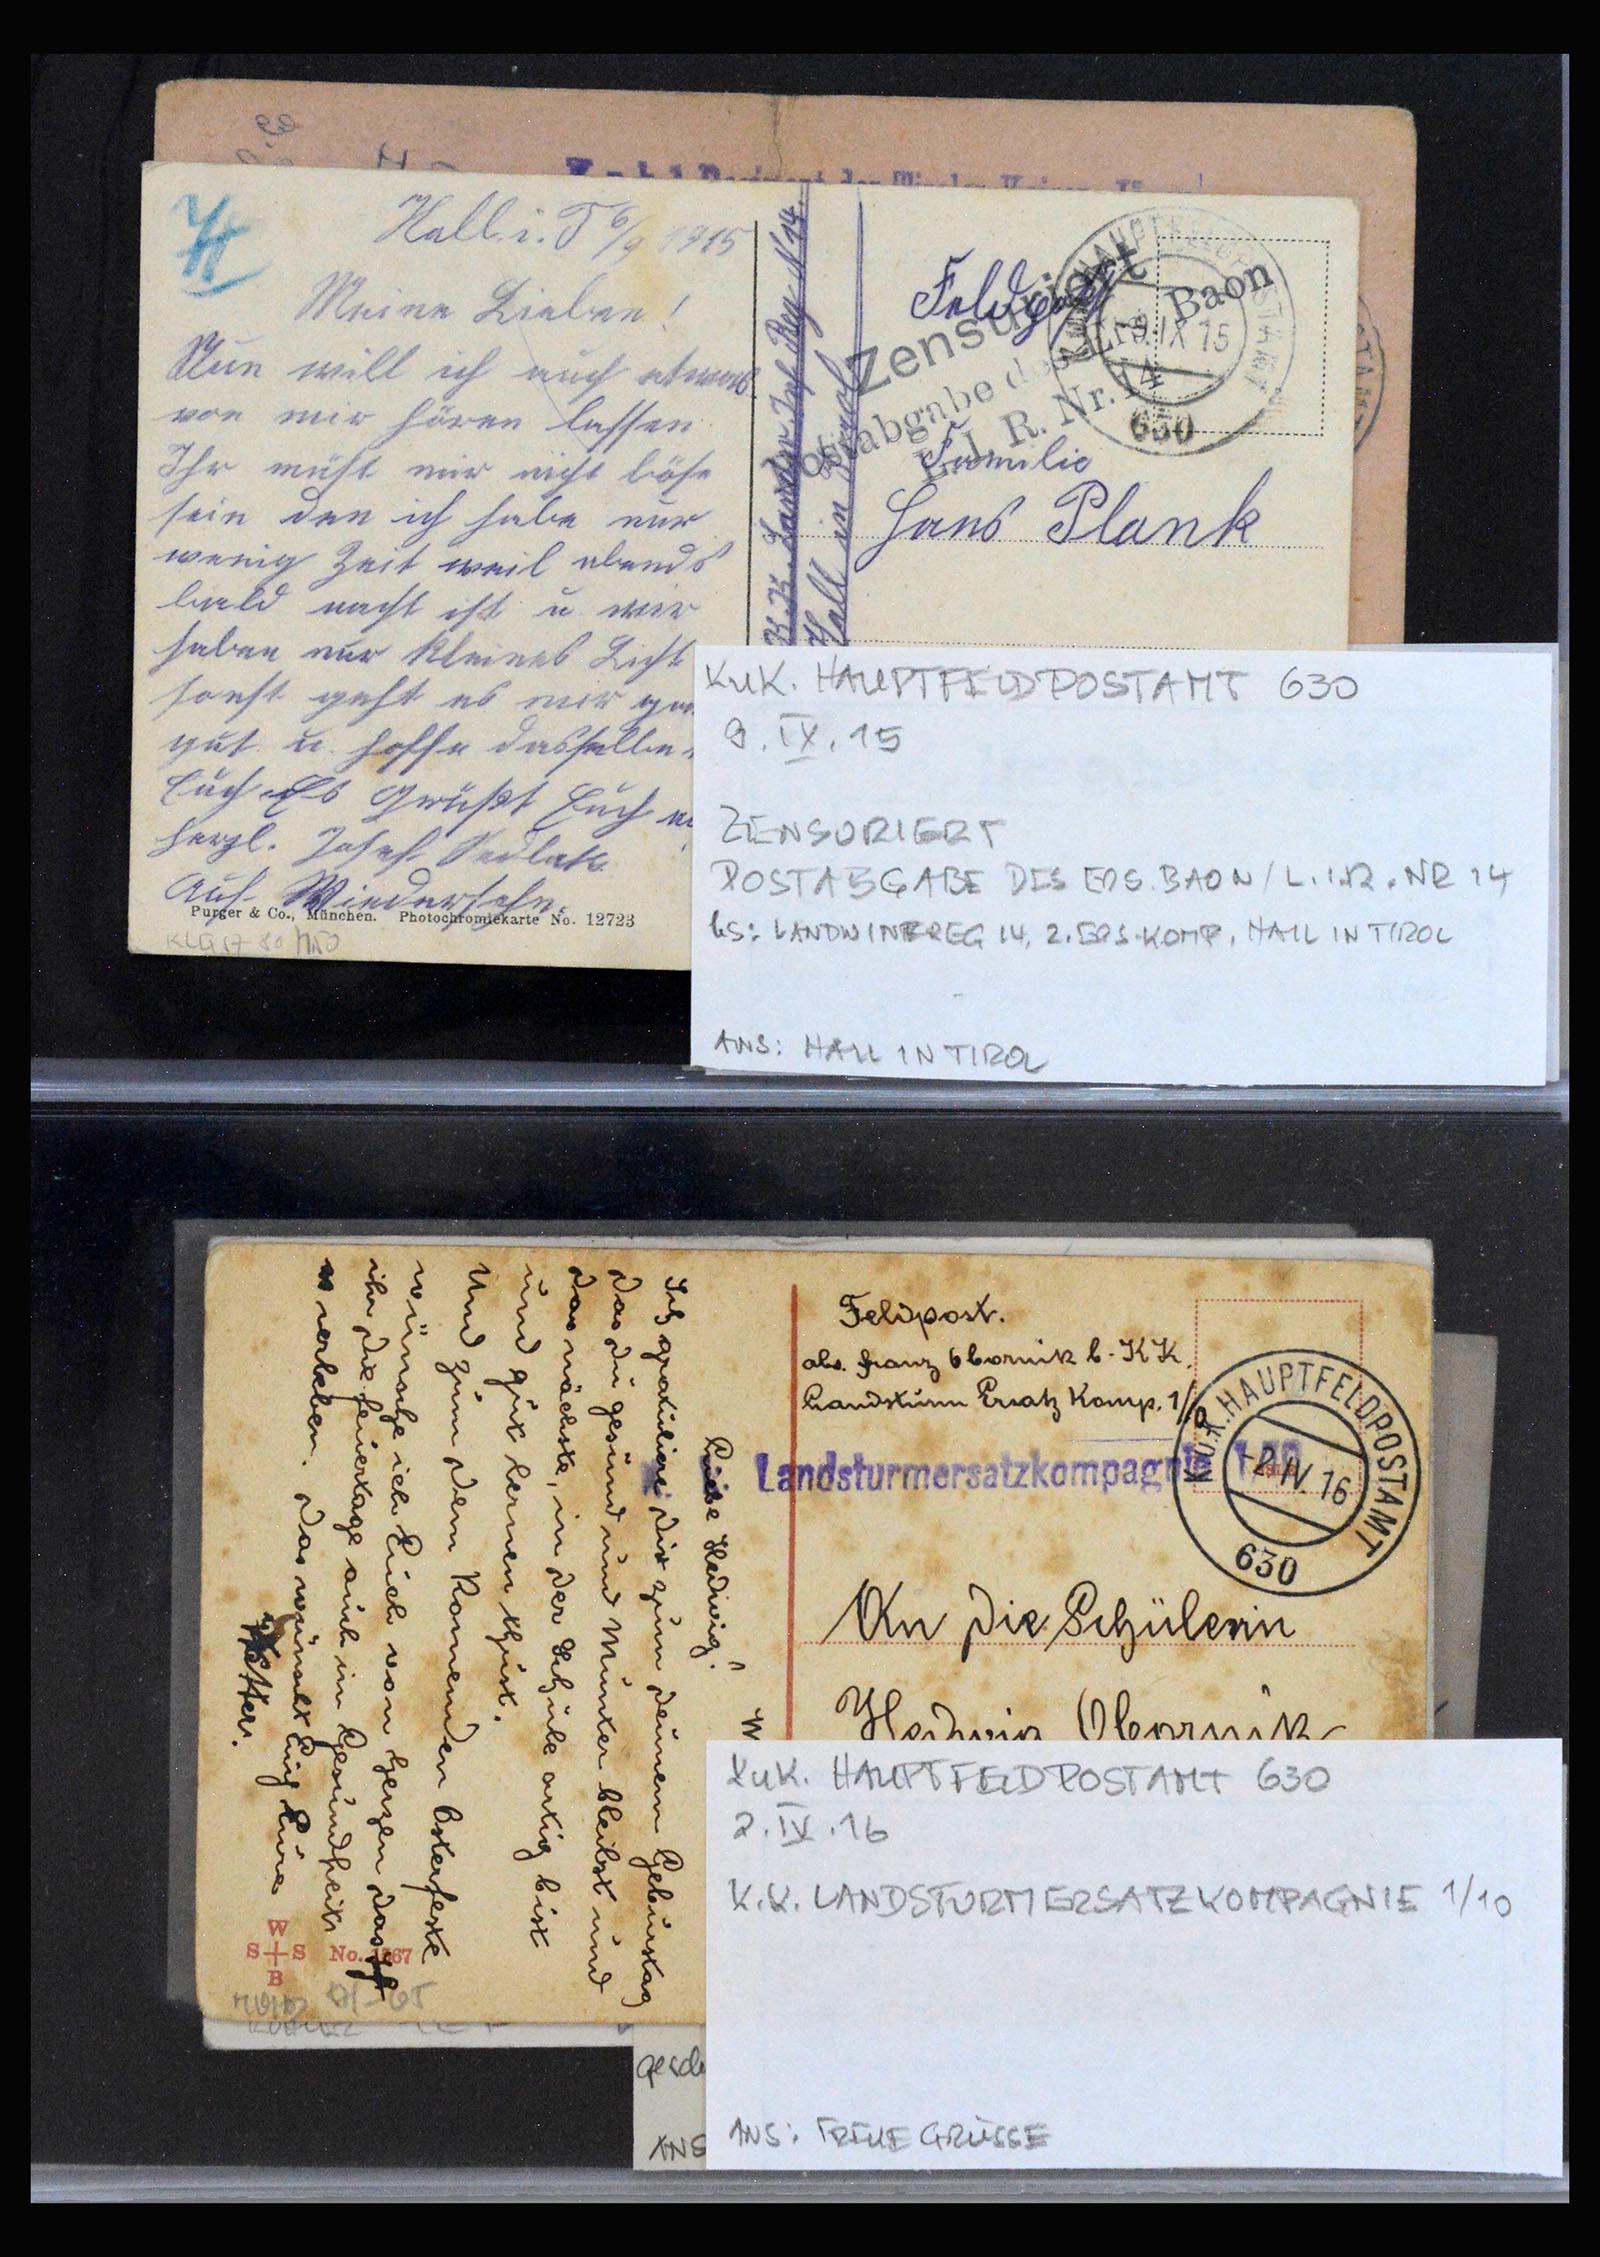 Hall i. T 6/9 1915
Meine Lieben!
Nun will ich auch etwas
von mir hören lassen.
Ihr müßt mir nicht böse
sein den ich habe nur
wenig Zeit weil abends
bald nacht ist u. wir
haben nur kleines Licht
sonst geht es mir
gut u. hoffe dasselbe
Euch Es Grüßt Euch
herzl. Josef Sedlak
Auf Wiedersehn.
Purger & Co., München. Photochromiekarte No. 12723
K.K. Landw. Inf. Reg. N 14.
Hall in Tirol
Feldpost
Zensuriert
Postabgabe des Ers. Baon
L. I. R. Nr. 14
HAUPTFELDPOSTAMT
9. IX 15
630
Familie
Hans Plank
KuK. HAUPTFELDPOSTAMT 630
9.IX.15
ZENSURIERT
POSTABGABE DES ERS.BAON/L.I.R.NR 14
bs: LANDWINFREG 14, 2.ERS.KOMP, HALL IN TIROL
ANS: HALL IN TIROL
Feldpost.
abs. Franz Obornik b. KK.
Landsturm Ersatz Komp. 1/10
K. K. Landsturmersatzkompagnie 1/10
K.U.K. HAUPTFELDPOSTAMT
-2 IV. 16
630
An die Schülerin
Hedwig Obornik
Liebe Hedwig!
Ich gratuliere dir zum deinem Geburstag
das du gesund und Munter bleibst und
das nächste, in der Schule artig bist
und gut lernen thust.
Und zum dem Komenden Osterfeste
wünsche ich Euch von herzen das
ihr die feiertage auch in Gesundheit
verleben. das wünscht Euch Eure
Vetter.
W
S S
B
No. 1367
KuK. HAUPTFELDPOSTAMT 630
2.IV.16
K.K. LANDSTURMERSATZKOMPAGNIE 1/10
ANS: TREUE GRÜSSE
ANS